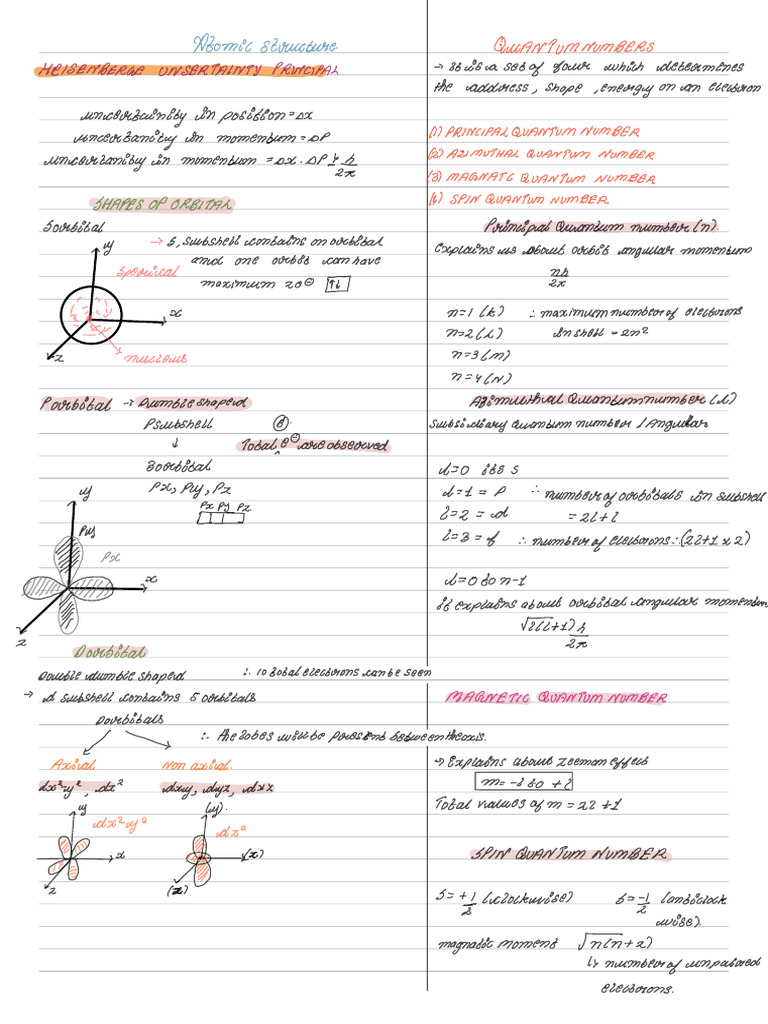 Atomic structure
HEISENBERGE UNSERTAINTY PRINCIPAL
uncertainity in position = Δx
uncertanity in momentum = ΔP
uncertanity in momentum = Δx · ΔP ≥ h/2π
SHAPES OF ORBITAL
S orbital
→ S, subshell contains on orbital
and one orbit can have
maximum 2e⊖ ↑↓
y
Sperical
x
z
nucleous
P orbital → Dumble shaped
P subshell
6
↓
Total e⊖ are observed
3 orbital
Px, Py, Pz
Px Py Pz
y
Py
Px
x
z
D orbital
Double dumble shaped ∴ 10 total electrons can be seen
→ d subshell contains 5 orbitals
D orbitals
∴ the lobes will be present between the axis.
Axial Non axial.
dx²-y², dz² dxy, dyz, dxz
y
dx²-y²
x
z
(y).
dz²
(x)
(z)
QUANTUM NUMBERS
→ It is a set of four which determines
the address, shape, energy on an electron
(1) PRINCIPAL QUANTUM NUMBER
(2) AZIMUTHAL QUANTUM NUMBER
(3) MAGNATIC QUANTUM NUMBER
(4) SPIN QUANTUM NUMBER
Principal Quantum number (n).
Explains us about orbit angular momentum
nh/2π
n=1 (k) ∴ maximum number of electrons
n=2 (L) in shell = 2n²
n=3 (m)
n=4 (N)
Azimuthal Quantum number (l)
Subsidiary quantum number / Angular
l=0 its S
l=1 = P ∴ number of orbitals in subshell
l=2 = d = 2l+1
l=3 = f ∴ number of electrons ∴ (2l+1 x 2)
l=0 to n-1
it explains about orbital angular momentum
√l(l+1) h/2π
MAGNETIC QUANTUM NUMBER
→ Explains about zeeman effect
m = -l to +l
Total values of m = 2l +1
SPIN QUANTUM NUMBER
S = +1/2 (clockwise) S = -1/2 (anticlock
wise).
magnatic moment √n(n+2)
↳ number of unpaired
electrons.